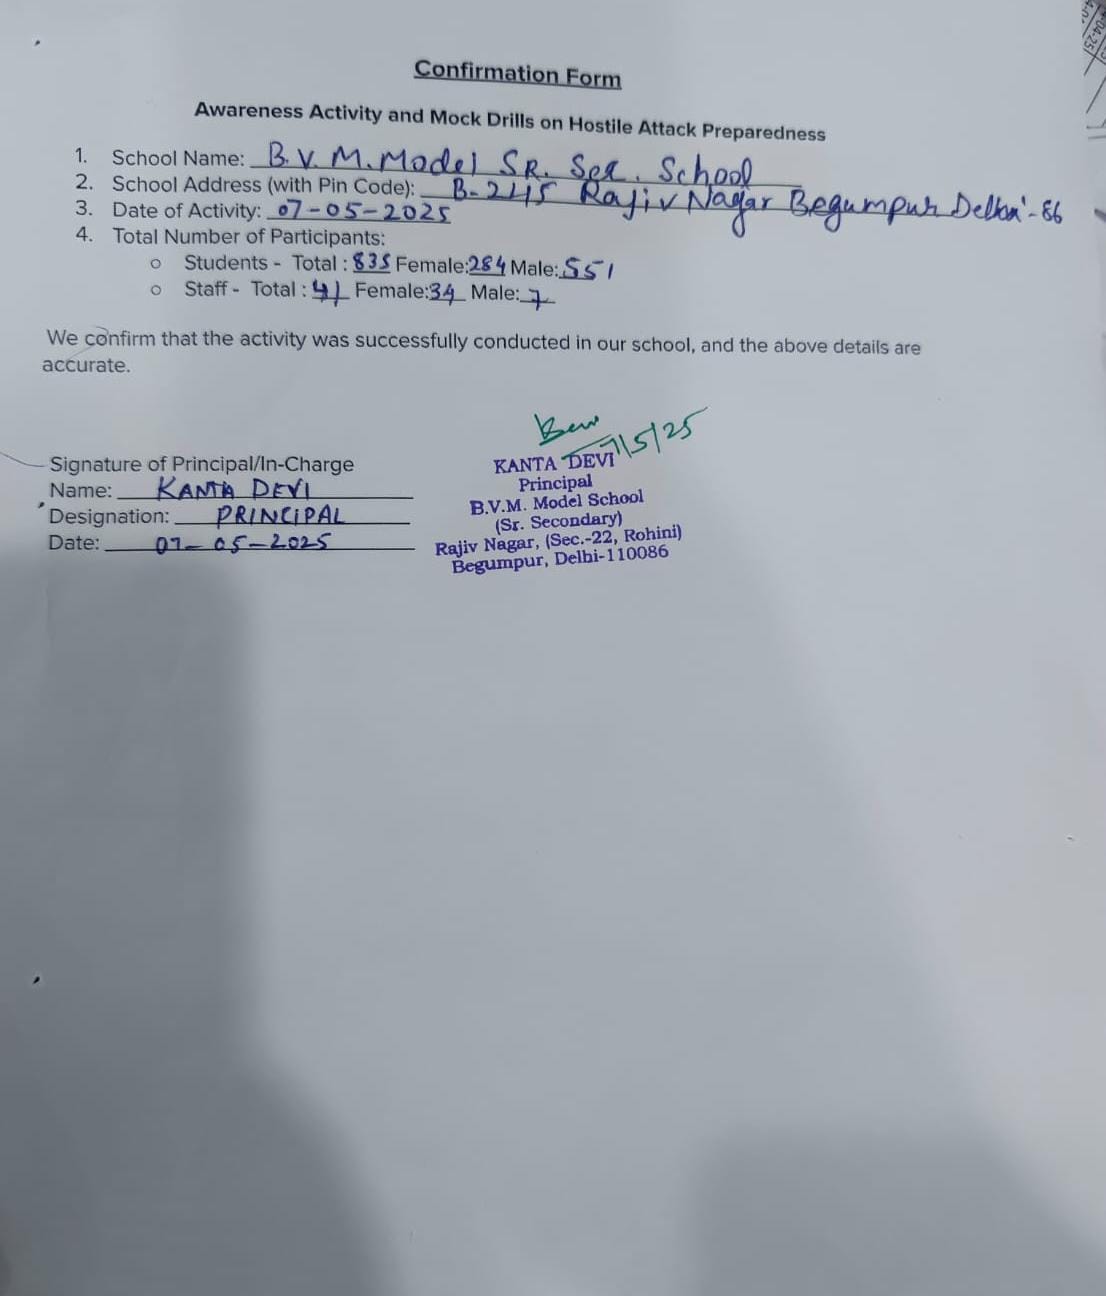 Confirmation Form
Awareness Activity and Mock Drills on Hostile Attack Preparedness
1. School Name: B.V.M. Model SR. Sec. School
2. School Address (with Pin Code): B-245 Rajiv Nagar Begumpur Delhi-86
3. Date of Activity: 07-05-2025
4. Total Number of Participants:
o Students - Total : 835 Female:284 Male:551
o Staff - Total : 41 Female:34 Male:7
We confirm that the activity was successfully conducted in our school, and the above details are
accurate.
7/5/25
Signature of Principal/In-Charge
Name: KANTA DEVI
Designation: PRINCIPAL
Date: 07-05-2025
KANTA DEVI
Principal
B.V.M. Model School
(Sr. Secondary)
Rajiv Nagar, (Sec.-22, Rohini)
Begumpur, Delhi-110086